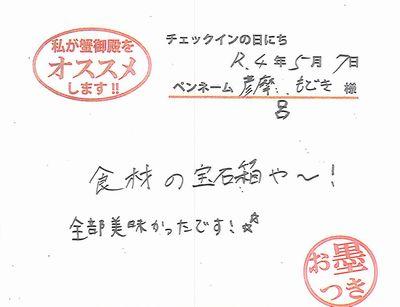 私が蟹御殿を
オススメ
します!!
チェックインの日にち
R.4年5月7日
ペンネーム 彦摩、もどき 様
呂
食材の宝石箱や〜!
全部美味かったです!☆☆
お墨
つき